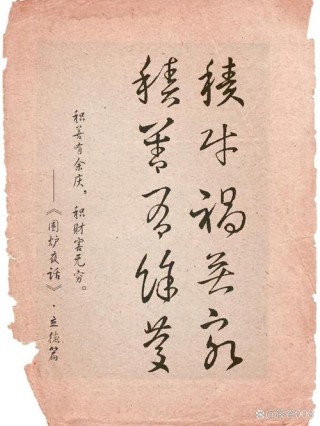 積财禍無窮
積善有餘慶
积善有余庆，积财害无穷。
——《围炉夜话》·立德篇